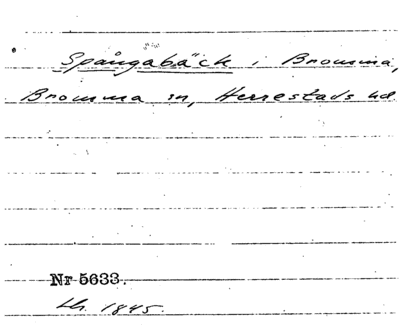 Spångabäck i Bromma,
Bromma sn, Herrestads hd
Nr 5633.
Lh. 1845.